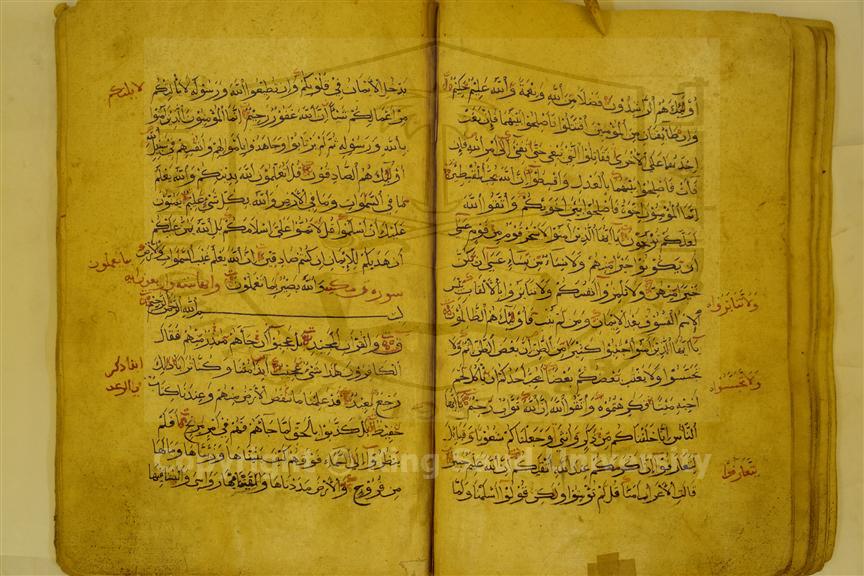 أولئك هم الراشدون فضلا من الله ونعمة والله عليم حكيم
وإن طائفتان من المؤمنين اقتتلوا فأصلحوا بينهما فإن بغت
إحديهما على الأخرى فقاتلوا التي تبغي حتى تفيء إلى أمر الله فإن
فاءت فأصلحوا بينهما بالعدل وأقسطوا إن الله يحب المقسطين
إنما المؤمنون إخوة فأصلحوا بين أخويكم واتقوا الله
لعلكم ترحمون يا أيها الذين آمنوا لا يسخر قوم من قوم عسى
أن يكونوا خيرا منهم ولا نساء من نساء عسى أن يكن
خيرا منهن ولا تلمزوا أنفسكم ولا تنابزوا بالألقاب بئس
الاسم الفسوق بعد الإيمان ومن لم يتب فأولئك هم الظالمون
يا أيها الذين آمنوا اجتنبوا كثيرا من الظن إن بعض الظن إثم ولا
تجسسوا ولا يغتب بعضكم بعضا أيحب أحدكم أن يأكل لحم
أخيه ميتا فكرهتموه واتقوا الله إن الله تواب رحيم يا أيها
الناس إنا خلقناكم من ذكر وأنثى وجعلناكم شعوبا وقبائل
لتعارفوا إن أكرمكم عند الله أتقاكم إن الله عليم خبير
قالت الأعراب آمنا قل لم تؤمنوا ولكن قولوا أسلمنا ولما
ولا تنابزوا
ولا تجسسوا
لتعارفوا
يدخل الإيمان في قلوبكم وإن تطيعوا الله ورسوله لا يلتكم
من أعمالكم شيئا إن الله غفور رحيم إنما المؤمنون الذين آمنوا
بالله ورسوله ثم لم يرتابوا وجاهدوا بأموالهم وأنفسهم في سبيل الله
أولئك هم الصادقون قل أتعلمون الله بدينكم والله يعلم
ما في السموات وما في الأرض والله بكل شيء عليم يمنون
عليك أن أسلموا قل لا تمنوا علي إسلامكم بل الله يمن عليكم
أن هديكم للإيمان إن كنتم صادقين إن الله يعلم غيب السموات والأرض
والله بصير بما تعملون
سورة ق مكية
بسم الله الرحمن الرحيم
ق والقرآن المجيد بل عجبوا أن جاءهم منذر منهم فقال
الكافرون هذا شيء عجيب أئذا متنا وكنا ترابا ذلك
رجع بعيد قد علمنا ما تنقص الأرض منهم وعندنا كتاب
حفيظ بل كذبوا بالحق لما جاءهم فهم في أمر مريج أفلم
ينظروا إلى السماء فوقهم كيف بنيناها وزيناها وما لها
من فروج والأرض مددناها وألقينا فيها رواسي وأنبتنا فيها
لا يلتكم
بما تعملون
Copyright © King Saud University